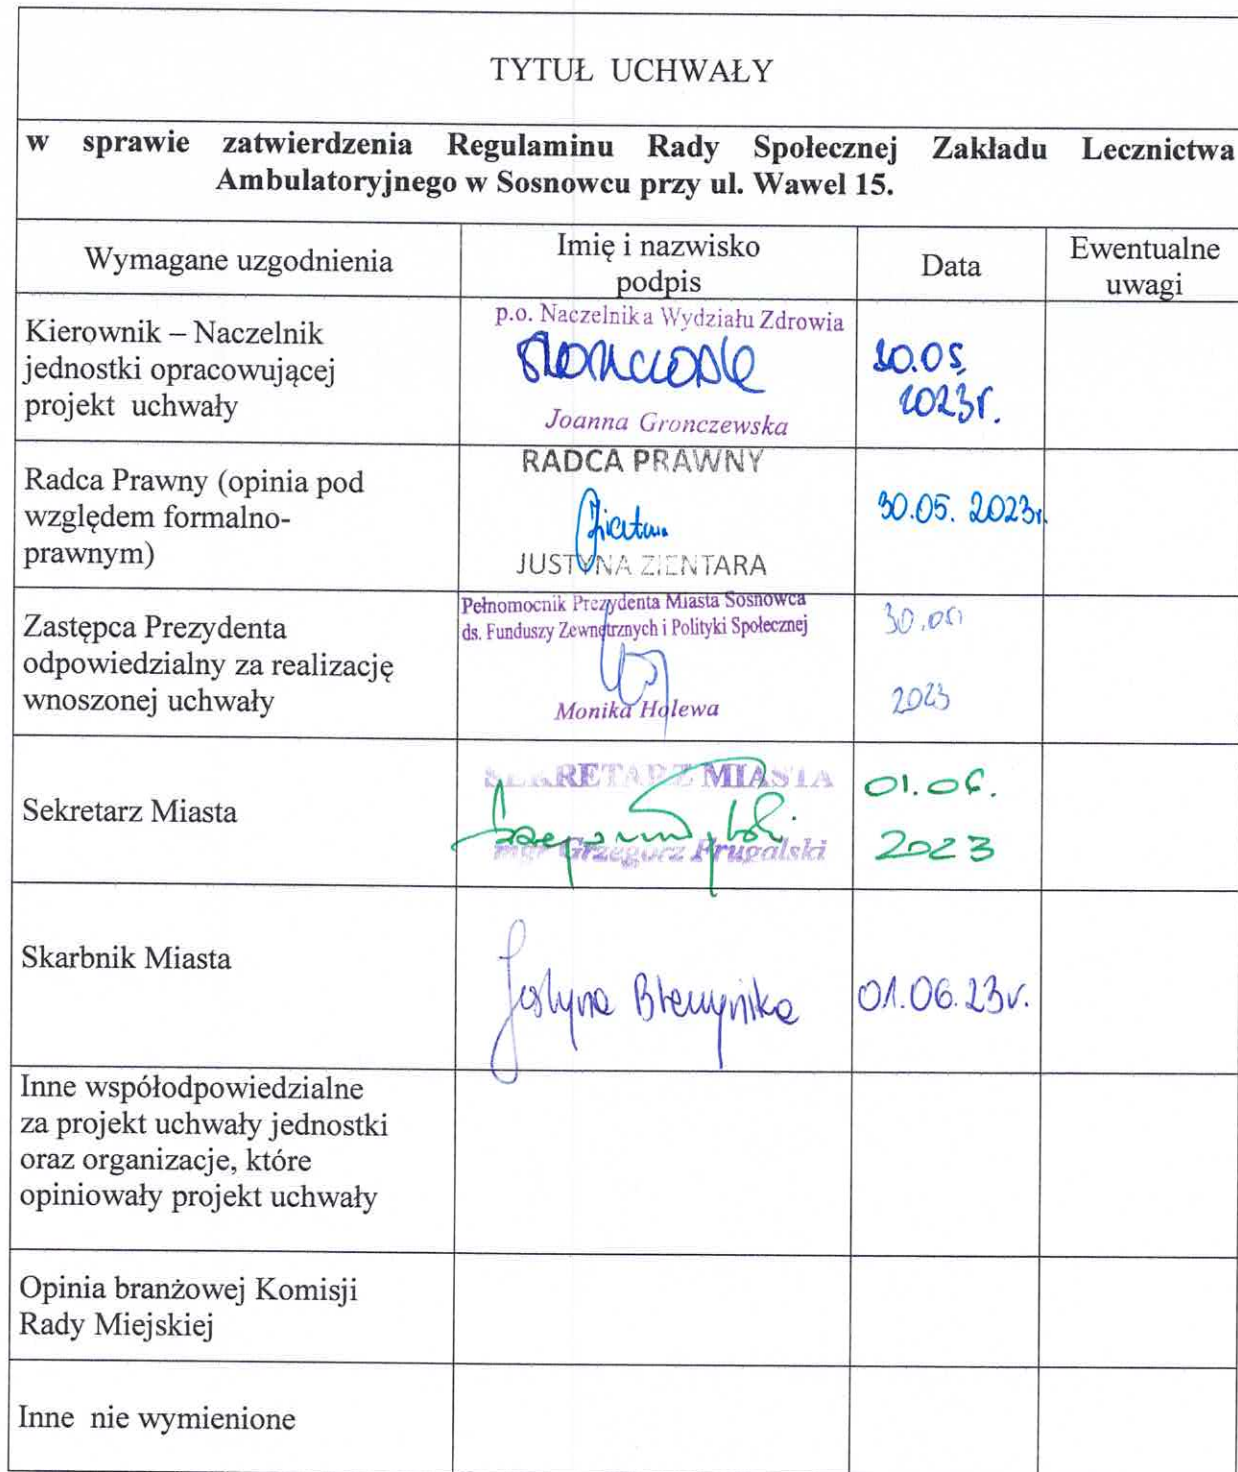 TYTUŁ UCHWAŁY
w sprawie zatwierdzenia Regulaminu Rady Społecznej Zakładu Lecznictwa
Ambulatoryjnego w Sosnowcu przy ul. Wawel 15.
Wymagane uzgodnienia
Imię i nazwisko
podpis
Data
Ewentualne
uwagi
Kierownik – Naczelnik
jednostki opracowującej
projekt uchwały
p.o. Naczelnika Wydziału Zdrowia
Joanna Gronczewska
30.05.
2023r.
Radca Prawny (opinia pod
względem formalno-
prawnym)
RADCA PRAWNY
JUSTYNA ZIENTARA
30.05. 2023r.
Zastępca Prezydenta
odpowiedzialny za realizację
wnoszonej uchwały
Pełnomocnik Prezydenta Miasta Sosnowca
ds. Funduszy Zewnętrznych i Polityki Społecznej
Monika Holewa
30.05
2023
Sekretarz Miasta
SEKRETARZ MIASTA
mgr Grzegorz Frugalski
01.06.
2023
Skarbnik Miasta
Justyna
01.06.23r.
Inne współodpowiedzialne
za projekt uchwały jednostki
oraz organizacje, które
opiniowały projekt uchwały
Opinia branżowej Komisji
Rady Miejskiej
Inne nie wymienione